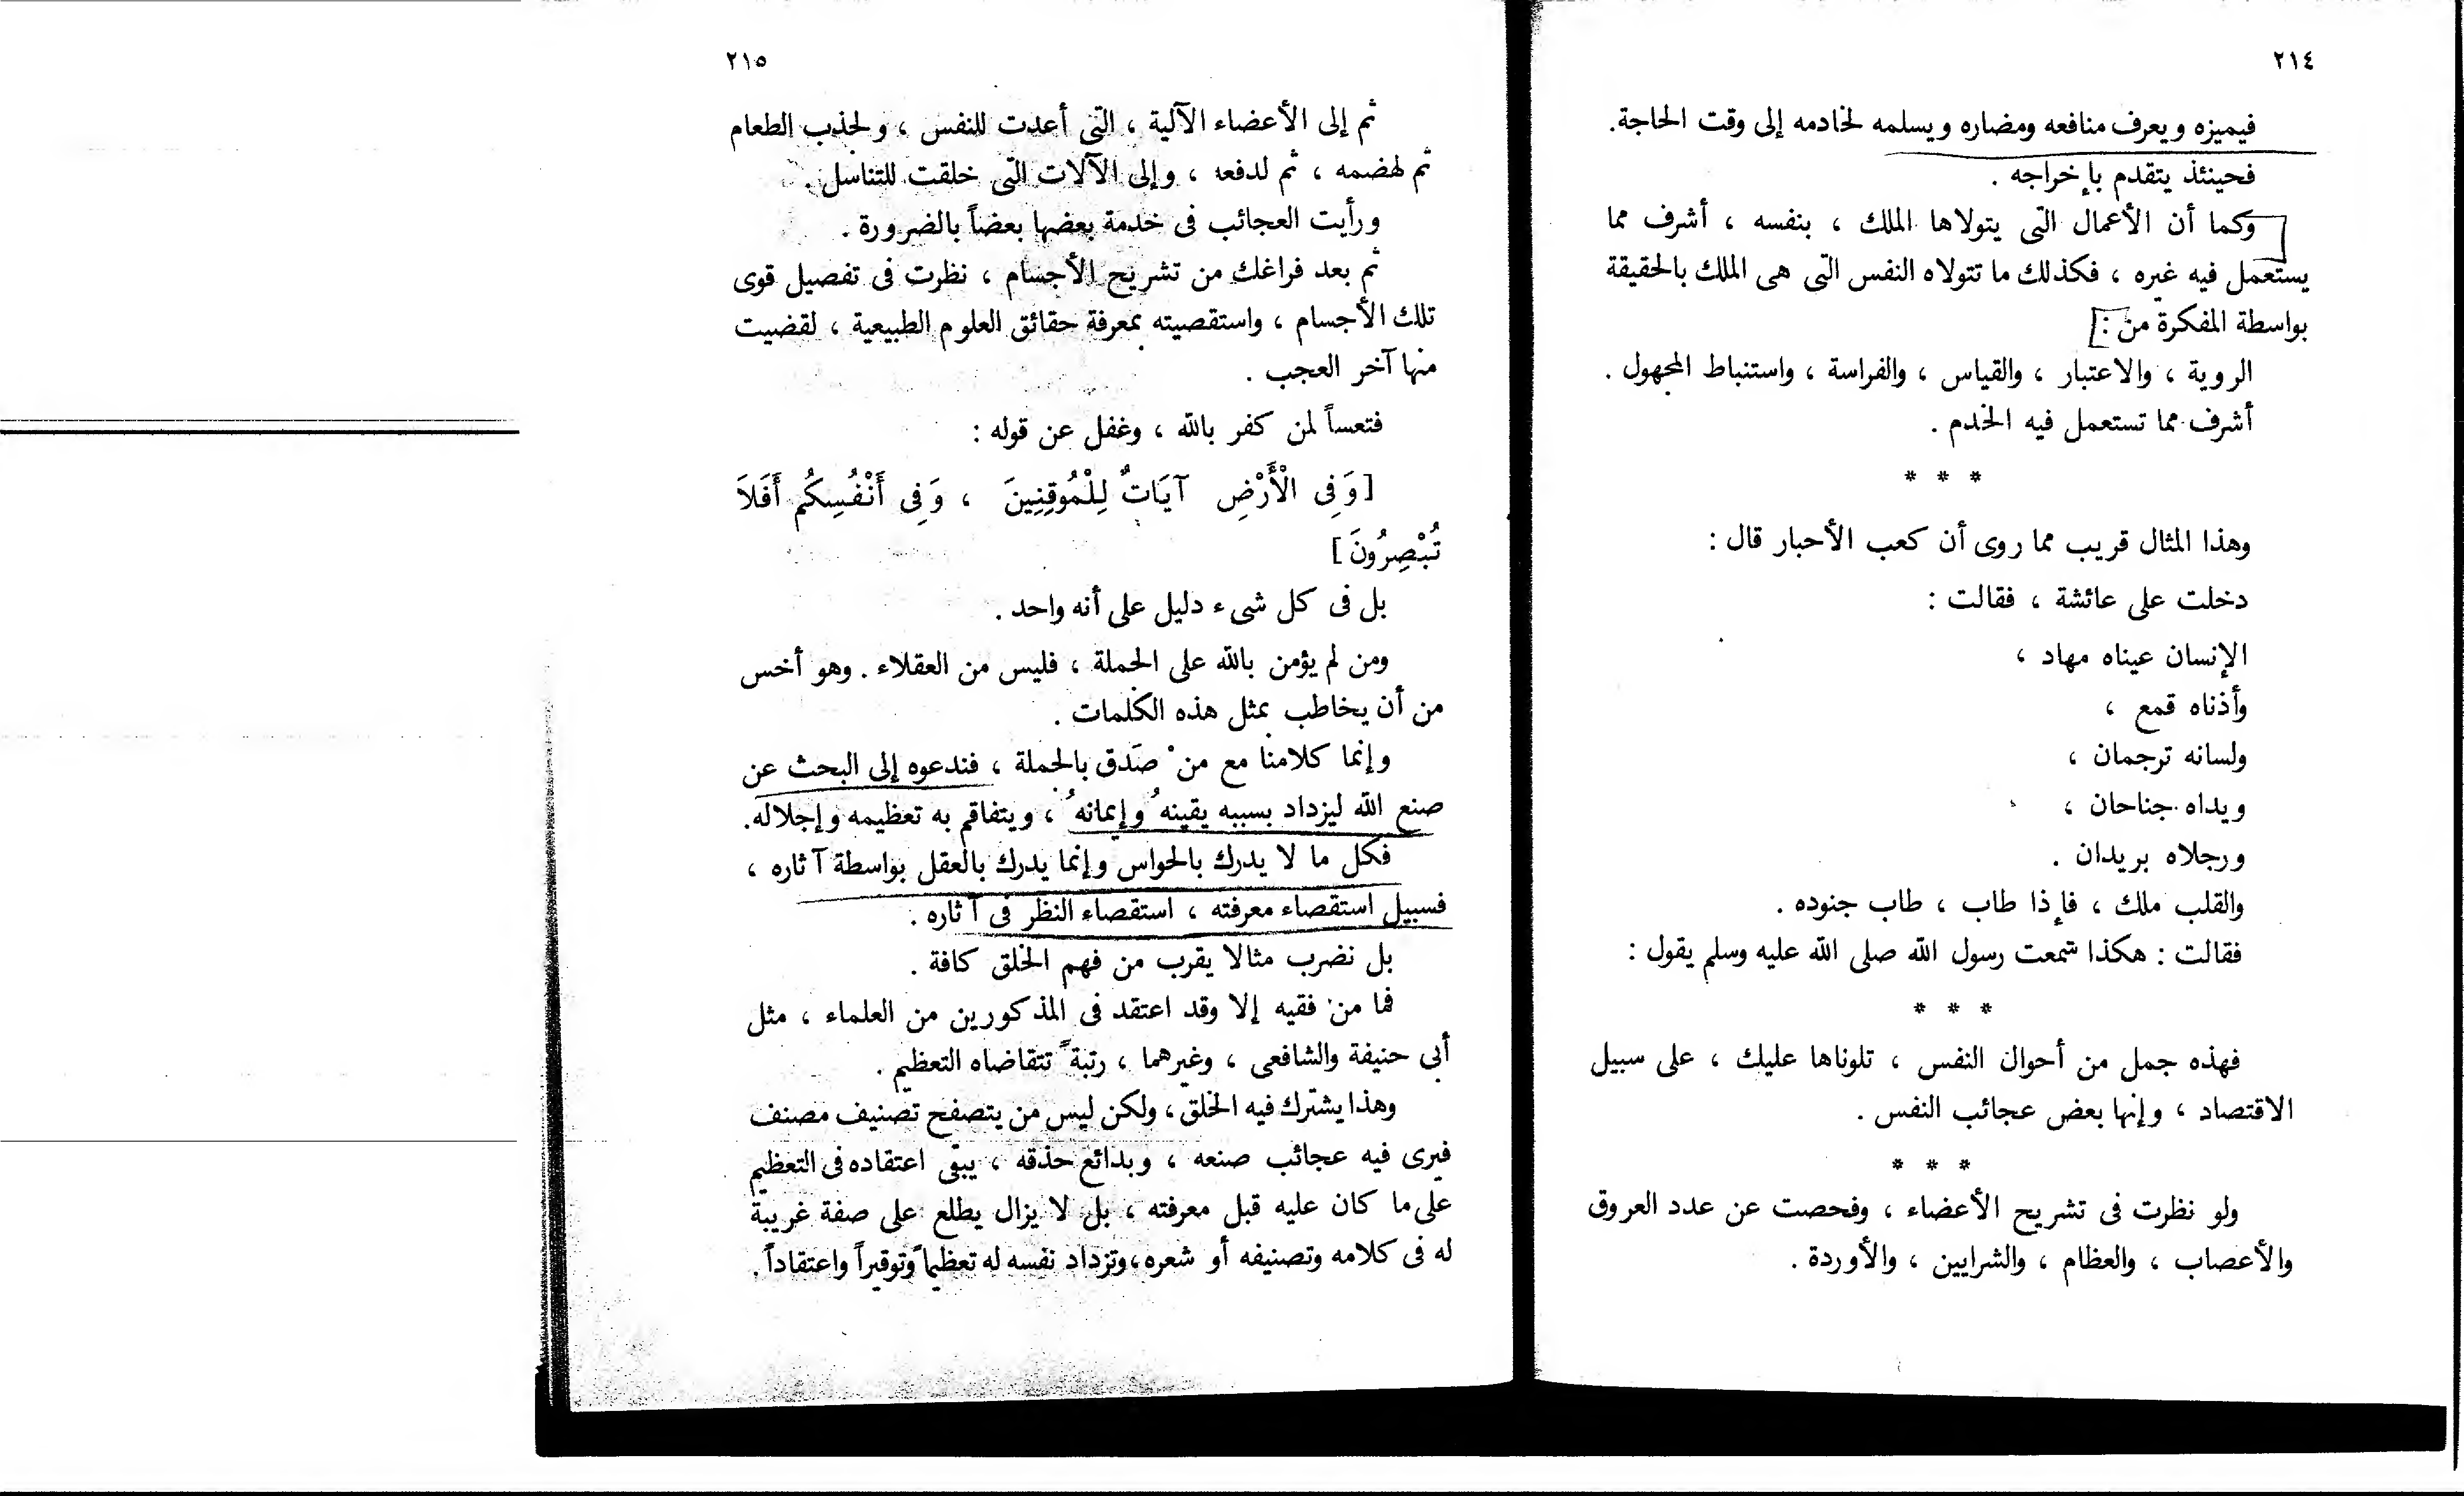 ٢١٤
فيميزه ويعرف منافعه ومضاره ويسلمه لخادمه إلى وقت الحاجة.
فحينئذ يتقدم بإخراجه .
وكما أن الأعمال التى يتولاها الملك ، بنفسه ، أشرف مما
يستعمل فيه غيره ، فكذلك ما تتولاه النفس التى هى الملك بالحقيقة
بواسطة المفكرة من :
الروية ، والاعتبار ، والقياس ، والفراسة ، واستنباط المجهول .
أشرف مما تستعمل فيه الخدم .
* * *
وهذا المثال قريب مما روى أن كعب الأحبار قال :
دخلت على عائشة ، فقالت :
الإنسان عيناه مهاد ،
وأذناه قمع ،
ولسانه ترجمان ،
ويداه جناحان ،
ورجلاه بريدان .
والقلب ملك ، فإذا طاب ، طاب جنوده .
فقالت : هكذا سمعت رسول الله صلى الله عليه وسلم يقول :
* * *
فهذه جمل من أحوال النفس ، تلوناها عليك ، على سبيل
الاقتصاد ، وإنها بعض عجائب النفس .
* * *
ولو نظرت فى تشريح الأعضاء ، وفحصت عن عدد العروق
والأعصاب ، والعظام ، والشرايين ، والأوردة .
٢١٥
ثم إلى الأعضاء الآلية ، التى أعدت للنفس ، ولجذب الطعام
ثم لهضمه ، ثم لدفعه ، وإلى الآلات التى خلقت للتناسل .
ورأيت العجائب فى خدمة بعضها بعضاً بالضرورة .
ثم بعد فراغك من تشريح الأجسام ، نظرت فى تفصيل قوى
تلك الأجسام ، واستقصيته بمعرفة حقائق العلوم الطبيعية ، لقضيت
منها آخر العجب .
فتعساً لمن كفر بالله ، وغفل عن قوله :
[ وَفِى الْأَرْضِ آيَاتٌ لِلْمُوقِنِينَ ، وَفِى أَنْفُسِكُم أَفَلاَ
تُبْصِرُونَ ]
بل فى كل شىء دليل على أنه واحد .
ومن لم يؤمن بالله على الجملة ، فليس من العقلاء . وهو أخس
من أن يخاطب بمثل هذه الكلمات .
وإنما كلامنا مع منْ صَدق بالجملة ، فندعوه إلى البحث عن
صنع الله ليزداد بسببه يقينهُ وإيمانهُ ، ويتفاقم به تعظيمه وإجلاله.
فكل ما لا يدرك بالحواس وإنما يدرك بالعقل بواسطة آثاره ،
فسبيل استقصاء معرفته ، استقصاء النظر فى آثاره .
بل نضرب مثالا يقرب من فهم الخلق كافة .
فما من فقيه إلا وقد اعتقد فى المذكورين من العلماء ، مثل
أبى حنيفة والشافعى ، وغيرهما ، رتبةً تتقاضاه التعظيم .
وهذا يشترك فيه الخلق، ولكن ليس من يتصفح تصنيف مصنف
فيرى فيه عجائب صنعه ، وبدائع حذقه ، يبقى اعتقاده فى التعظيم
على ما كان عليه قبل معرفته ، بل لا يزال يطلع على صفة غريبة
له فى كلامه وتصنيفه أو شعره، وتزداد نفسه له تعظيماً وتوقيراً واعتقاداً.